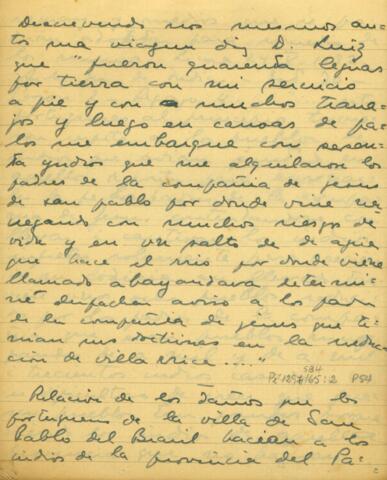 Descrevendo nos mesmos au-
tos sua viagem diz D. Luiz
que "fueron quarenta leguas
por tierra con mi servicio
a pie y con muchos traua-
jos y luego en canoas de pa-
los me embarque con sesen-
ta yndios que me alquilaron los
padres de la compañia de jesus
de san pablo por donde vine na
uegando con muchos riesgos de
vida y en un salto de de agua
que hace el rrio por donde viene
llamado abayandava determi-
né despachar aviso a los padres
de la compañia de jesus que te-
nian sus doctrinas en la reduc-
cion de villa rrica ....."
P54
Relacion de los daños que los
portugueses de la villa de San
Pablo del Brasil hacian a los
indios de la provincia del Pa-